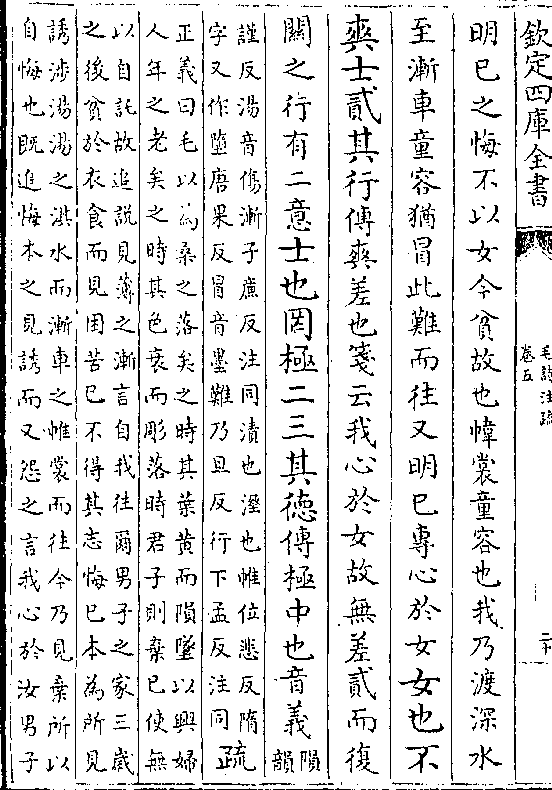 欽定四庫全書
毛詩注疏
卷五
明已之悔不以女今貧故也幃裳童容也我乃渡深水
至漸車童容猶冒此難而往又明已專心於女女也不
爽士貳其行傳爽差也箋云我心於女故無差貳而復
關之行有二意士也罔極二三其德傳極中也音義隕韻
謹反湯音傷漸子亷反注同漬也溼也帷位悲反隋
字又作墮唐果反冒音墨難乃旦反行下孟反注同疏
正義曰毛以為桑之落矣之時其葉黄而隕墜以興婦
人年之老矣之時其色衰而彫落時君子則棄已使無
以自託故追說見薄之漸言自我往爾男子之家三歳
之後貧於衣食而見困苦已不得其志悔已本為所見
誘涉湯湯之淇水而漸車之帷裳而往今乃見棄所以
自悔也既追悔本之見誘而又怨之言我心於汝男子